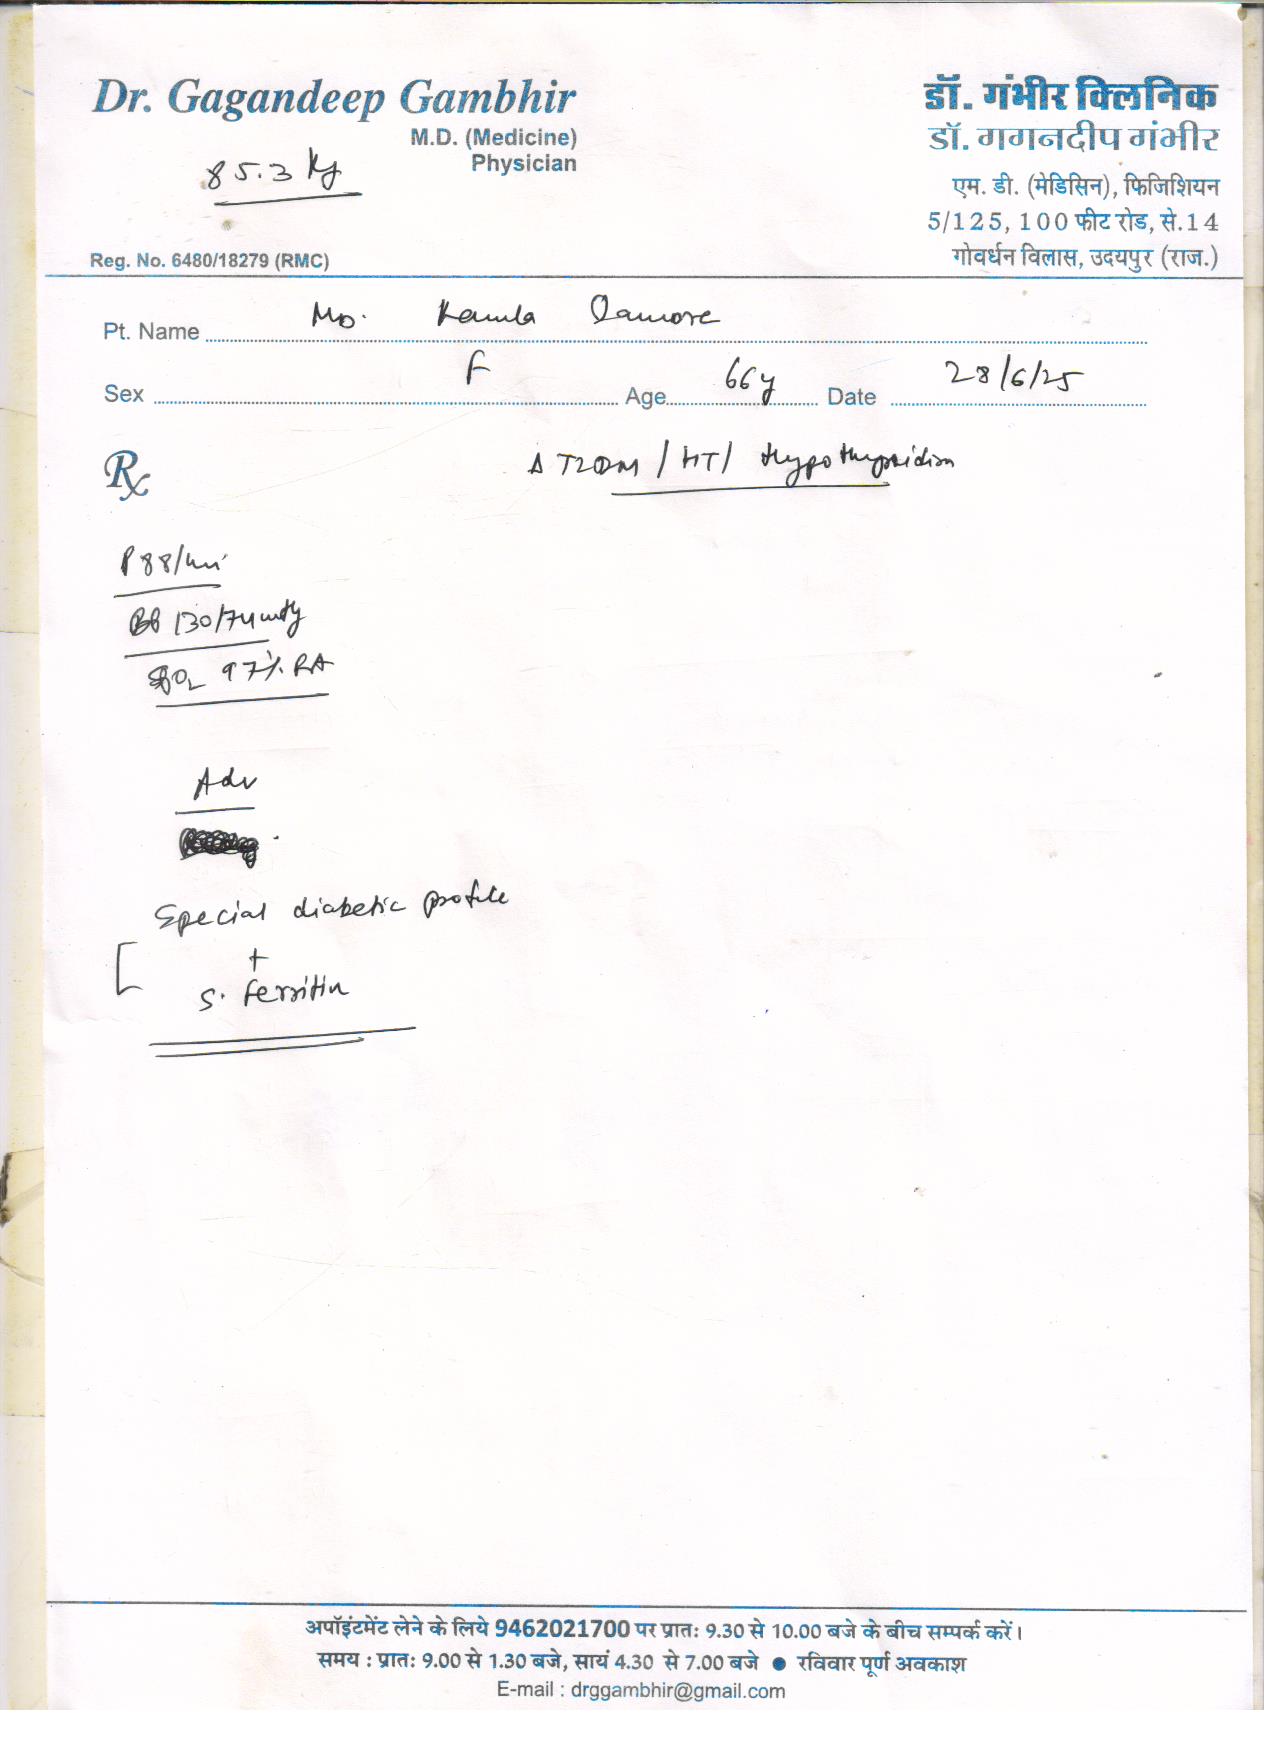 Dr. Gagandeep Gambhir
M.D. (Medicine)
Physician
85.3 kg
Reg. No. 6480/18279 (RMC)
डॉ. गंभीर क्लिनिक
डॉ. गगनदीप गंभीर
एम. डी. (मेडिसिन), फिजिशियन
5/125, 100 फीट रोड, से.14
गोवर्धन विलास, उदयपुर (राज.)
Pt. Name Ms. Kamla Damore
Sex F Age 66y Date 28/6/25
Rx
Δ T2DM / HT / Hypothyroidism
P 88/min
BP 130/74 mmHg
SpO2 97% RA
Adv
Special diabetic profile
+
S. ferritin
अपॉइंटमेंट लेने के लिये 9462021700 पर प्रातः 9.30 से 10.00 बजे के बीच सम्पर्क करें।
समय : प्रातः 9.00 से 1.30 बजे, सायं 4.30 से 7.00 बजे ● रविवार पूर्ण अवकाश
E-mail : drggambhir@gmail.com